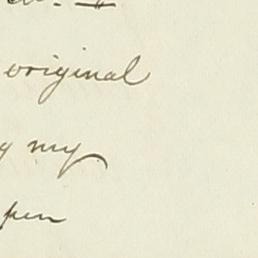 original
my
pen